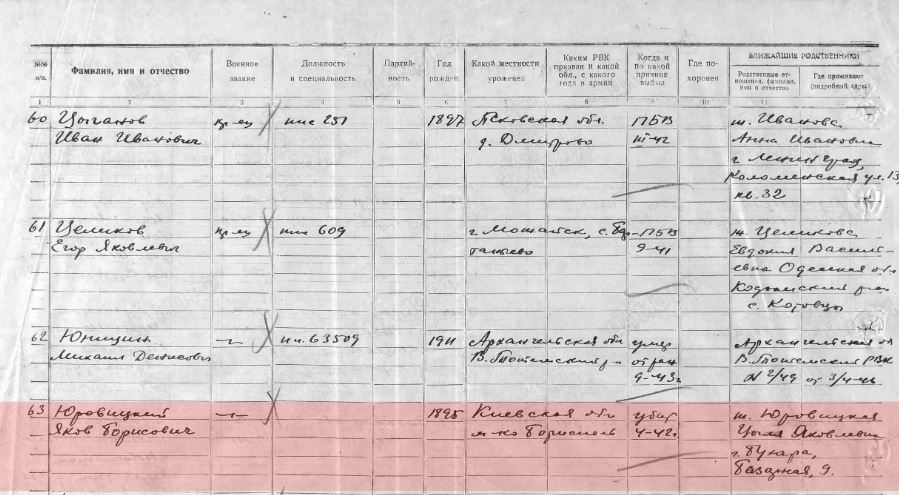 №№ п/п.
Фамилия, имя и отчество
Военное звание
Должность и специальность
Партийность
Год рожден.
Какой местности уроженец
Каким РВК призван и какой обл., с какого года в армии
Когда и по какой причине выбыл
Где похоронен
БЛИЖАЙШИЕ РОДСТВЕННИКИ
Родственные отношения, фамилия, имя и отчество
Где проживают (подробный адрес)
1 2 3 4 5 6 7 8 9 10 11
60 Цыганов кр-ец ппс 251 1897 Псковская обл. ПБВ ж. Иванова
Иван Иванович д. Дмитрово III-42 Анна Ивановна
г. Ленинград,
Коломенская ул. 13,
кв. 32
61 Целиков кр-ец ппс 609 г. Можайск, с. ПБВ ж. Целикова
Егор Яковлевич 9-41 Евдокия Василь-
евна Одесская обл
Кодымский р-н
с. Котовцы
62 Юницин -"- п.ч. 63509 1911 Архангельская обл умер Архангельская обл
Михаил Денисович В. Тоемский р-н от ран В. Тоемский РВК
9-43г № 2/49 от 3/4-46
63 Юровицкий -"- 1895 Киевская обл убит ж. Юровицкая
Яков Борисович м-ко Борисполь 4-42г Цыля Яковлевна
г. Бухара,
Базарная, 9.